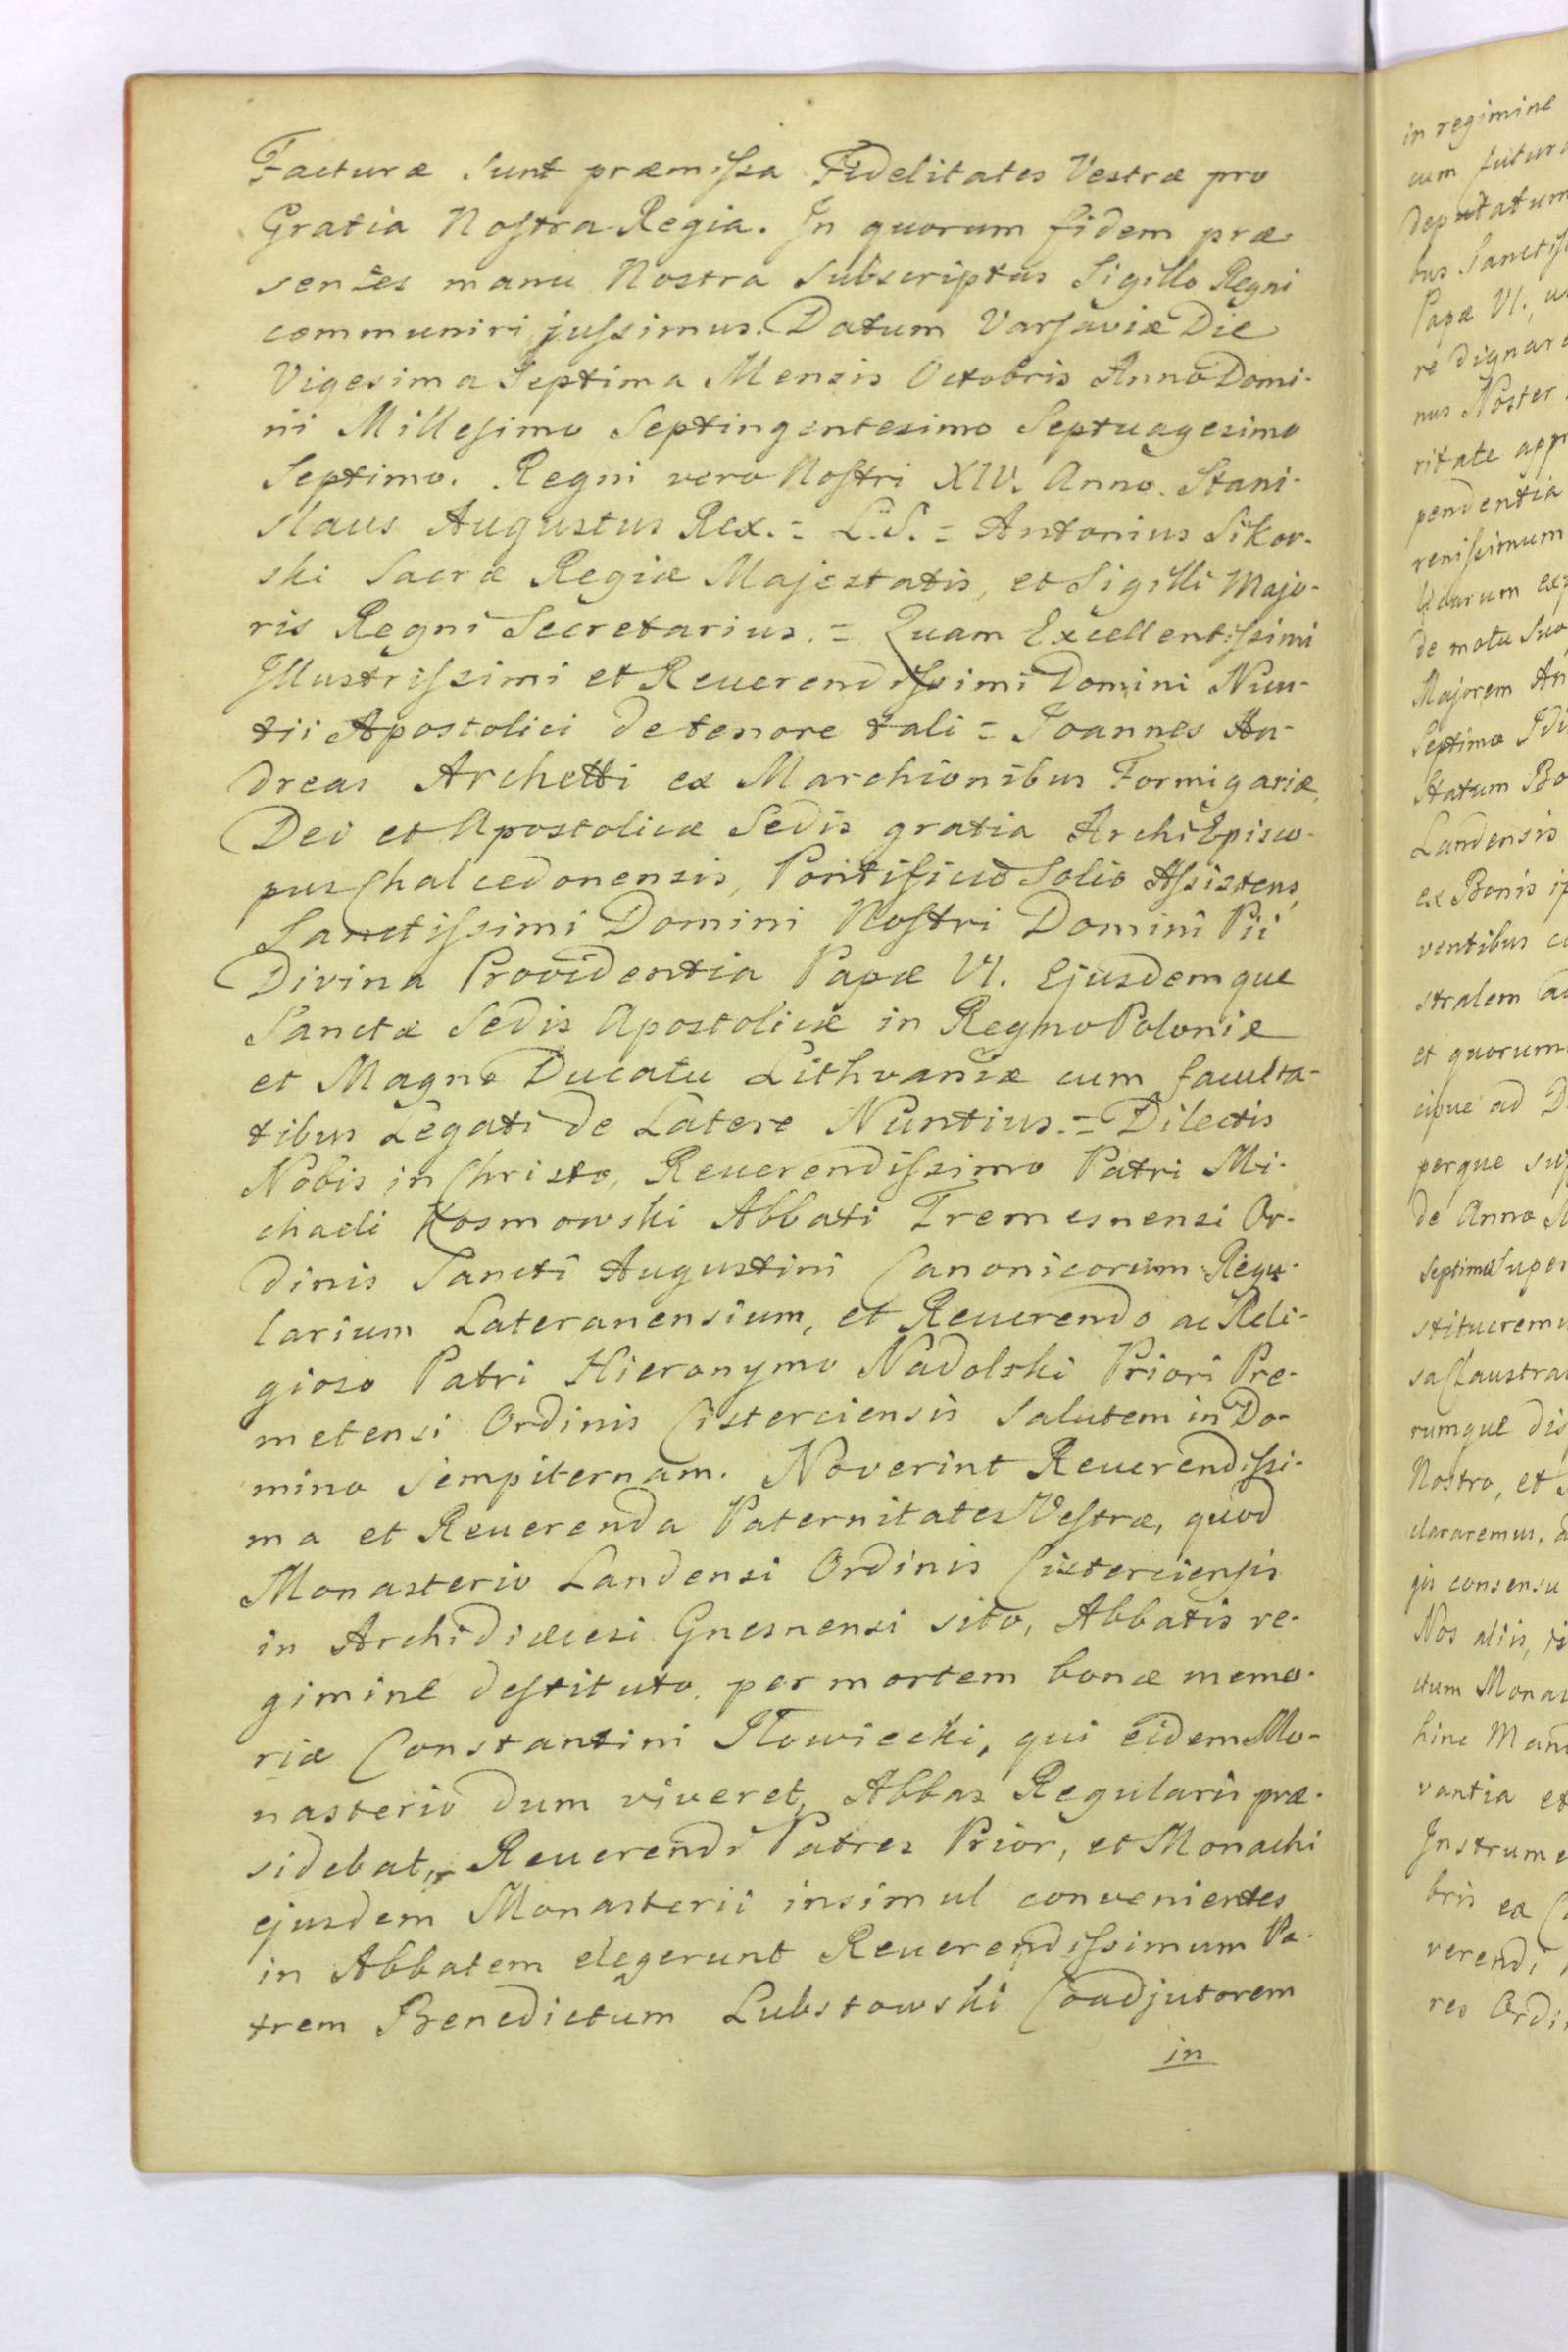 Facturæ sunt præmissa Fidelitates Vestræ pro
Gratia Nostra Regia. In quorum fidem præ
sentes manu Nostra Subscriptas Sigillo Regni
communiri jussimus. Datum Varsaviæ Die
Vigesima Septima Mensis Octobris Anno Domi-
ni Millesimo Septingentesimo Septuagesimo
Septimo. Regni vero Nostri XIV. Anno. Stani-
slaus Augustus Rex. = L.S. = Antonius Sikor-
ski Sacræ Regiæ Majestatis, et Sigilli Majo-
ris Regni Secretarius. = Quam Excellentissimi
Illustrissimi et Reuerendissimi Domini Nun-
tii Apostolici de tenore tali = Joannes An-
dreas Archetti ex Marchionibus Formigariæ,
Dei et Apostolicæ Sedis gratia ArchiEpisco-
pus Chalcedonensis, Pontificio Solio Assistens,
Sanctissimi Domini Nostri Domini Pii
Divina Providentia Papæ VI. Ejusdemque
Sanctæ Sedis Apostolicæ in Regno Poloniæ
et Magno Ducatu Lithvaniæ cum faculta-
tibus Legati de Latere Nuntius. = Dilectis
Nobis in Christo, Reuerendissimo Patri Mi-
chaeli Kosmowski Abbati Tremesnensi Or-
dinis Sancti Augustini Canonicorum Regu-
larium Lateranensium, et Reuerendo ac Reli-
gioso Patri Hieronymo Nadolski Priori Pre-
metensi Ordinis Cisterciensis Salutem in Do-
mino Sempiternam. Noverint Reuerendissi-
ma et Reuerenda Paternitates Vestræ, quod
Monasterio Landensi Ordinis Cisterciensis
in Archidiæcesi Gnesnensi sito, Abbatis re-
gimine destituto per mortem bonæ memo-
riæ Constantini Iłowiecki, qui eidem Mo-
nasterio dum viveret, Abbas Regularis præ-
sidebat, Reuerendi Patres Prior, et Monachi
ejusdem Monasterii insimul convenientes
in Abbatem elegerunt Reuerendissimum Pa-
trem Benedictum Lubstowski Coadjutorem
in
in regimine
cum futura
deputatum
bus Sanctiss
Papæ VI., u
re dignar
nus Noster
ritate app
pendentia
renissimum
de motu suo
Majorem An
Septimo Idi
Statum Bo
Landensis
ex Bonis i
ventibus c
stralem a
et quorum
cipue ad D
perque su
de Anno
Septimo super
stitueremu
sa Claustra
rumque dis
Nostro, et
clararemus. a
gis consensu
Nos aliis,
ctum Monas
hinc Mand
vantia et
Instrume
bris ex C
verendi
res Ordi